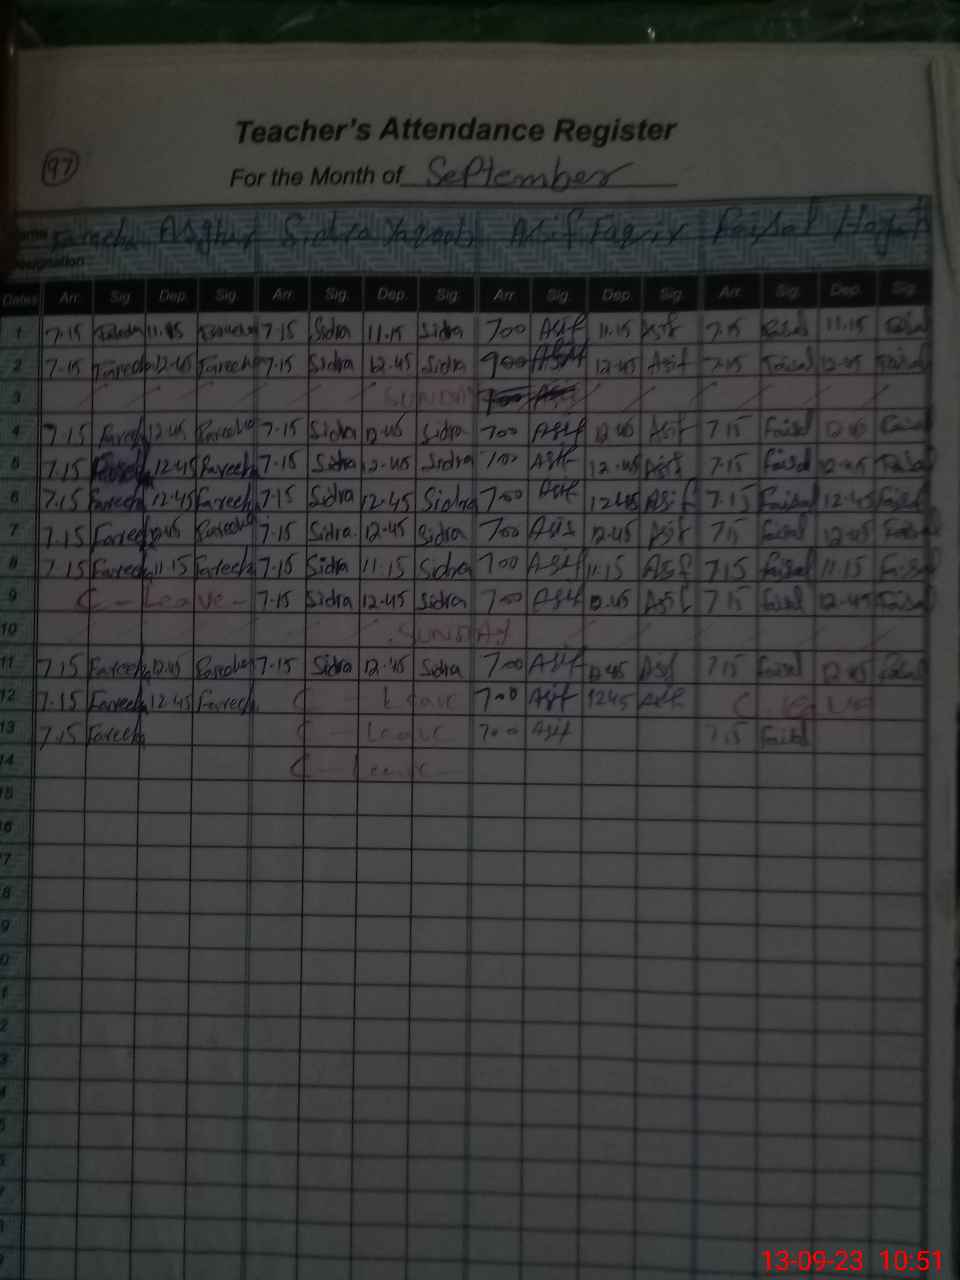 Teacher's Attendance Register
97
For the Month of September
Name Fareeha Asghar Sidra Yaqoob Asif Faqir Faisal Hayat
Designation
Dates Arr. Sig. Dep. Sig. Arr. Sig. Dep. Sig. Arr. Sig. Dep. Sig. Arr. Sig. Dep. Sig.
1 7.15 11.15 Fareeha 7-15 Sidra 11.15 Sidra 700 Asif 11.15 Asif 7.15 Faisal 11.15 Faisal
2 7.15 Fareeha 12.45 Fareeha 7-15 Sidra 12.45 Sidra Asif 12.45 Asif 7.15 Faisal 12.45 Faisal
3 SUNDAY
4 7.15 Fareeha 12.45 Fareeha 7-15 Sidra 12.45 Sidra 700 Asif 12.45 Asif 7.15 Faisal 12.45 Faisal
5 7.15 12.45 Fareeha 7-15 Sidra 12.45 Sidra 700 Asif 12.45 Asif 7.15 Faisal 12.45 Faisal
6 7.15 Fareeha 12.45 Fareeha 7-15 Sidra 12.45 Sidra 700 Asif 1245 Asif 7.15 Faisal 12.45 Faisal
7 7.15 Fareeha 12.45 Fareeha 7-15 Sidra 12.45 Sidra 700 Asif 12.45 Asif 7.15 Faisal 12.45 Faisal
8 7.15 Fareeha 11.15 Fareeha 7-15 Sidra 11.15 Sidra 700 Asif 11.15 Asif 7.15 Faisal 11.15 Faisal
9 C - Leave - 7-15 Sidra 12.45 Sidra 700 Asif 12.45 Asif 7.15 Faisal 12.45 Faisal
10 SUNDAY
11 7.15 Fareeha 12.45 Fareeha 7-15 Sidra 12.45 Sidra 700 Asif 12.45 Asif 7.15 Faisal 12.45 Faisal
12 7.15 Fareeha 12.45 Fareeha C - Leave 700 Asif 1245 Asif C
13 7.15 Fareeha C - Leave 700 Asif 7.15 Faisal
14 C - Leave
15
6
7
8
9
0
1
2
3
4
5
13-09-23 10:51